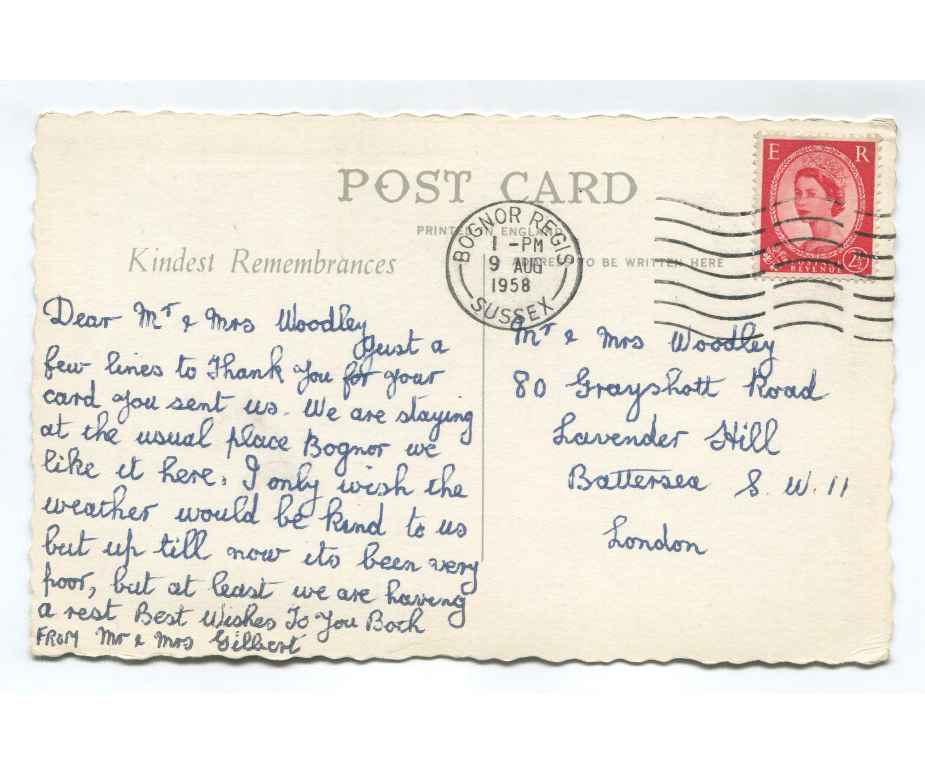 POST CARD
PRINTED IN ENGLAND
Kindest Remembrances
ADDRESS TO BE WRITTEN HERE
BOGNOR REGIS
1 - PM
9 AUG
1958
SUSSEX
E R
REVENUE
2½
Dear Mr & Mrs Woodley
Just a
few lines to Thank you for your
card you sent us. We are staying
at the usual place Bognor we
like it here. I only wish the
weather would be kind to us
but up till now its been very
poor, but at least we are having
a rest Best Wishes To You Both
FROM Mr & Mrs Gilbert
Mr & Mrs Woodley
80 Grayshott Road
Lavender Hill
Battersea S. W. 11
London